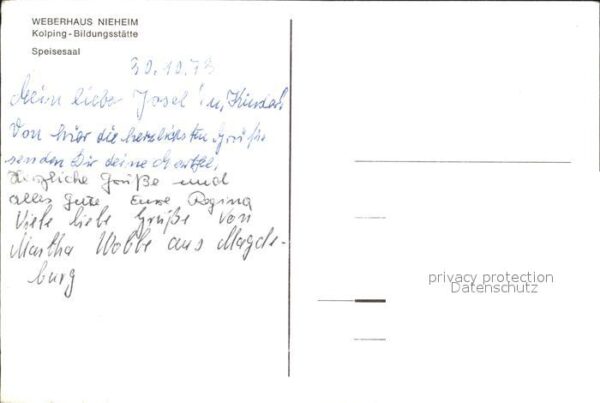 WEBERHAUS NIEHEIM
Kolping-Bildungsstätte
Speisesaal
30.10.73
Mein lieber Josel! u. Kinder
Von hier die herzlichsten Grüße
senden Dir deine
Herzliche Grüße und
alles Gute Eure Regina
Viele liebe Grüße von
Martha Wobbe aus Magde-
burg
privacy protection
Datenschutz